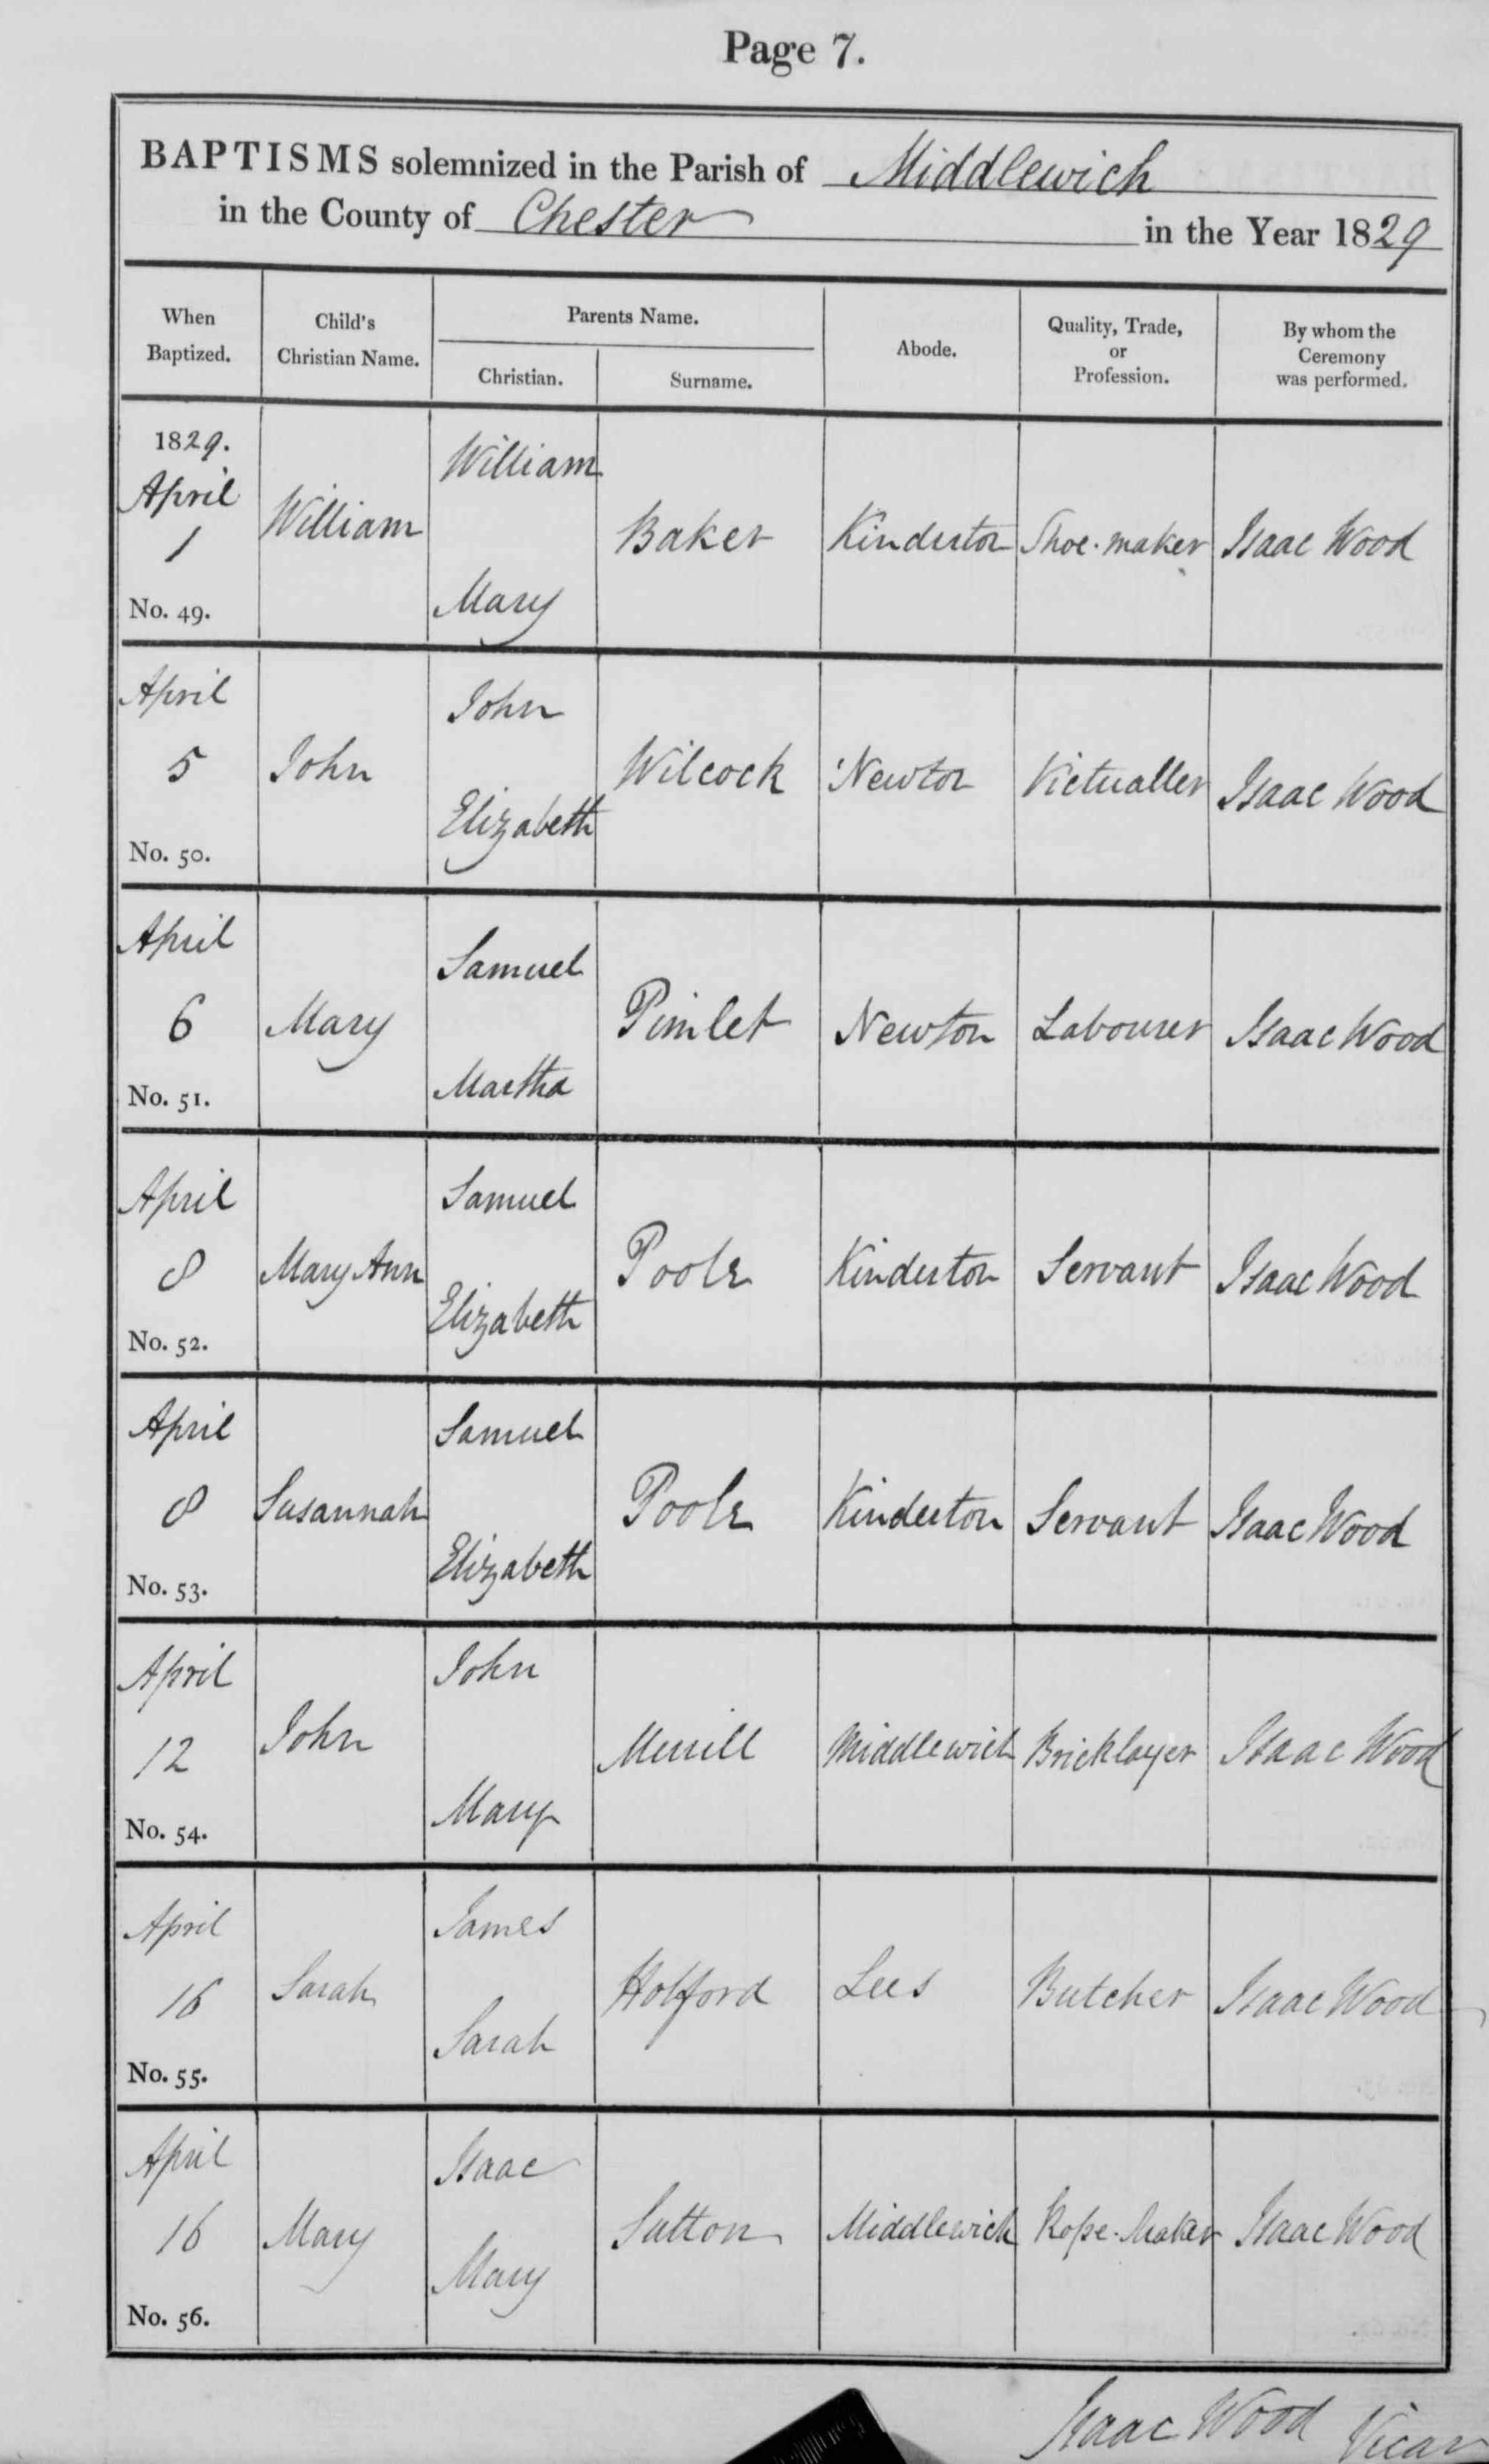 Page 7.
BAPTISMS solemnized in the Parish of Middlewich
in the County of Chester in the Year 1829
When Baptized. Child's Christian Name. Parents Name. Christian. Surname. Abode. Quality, Trade, or Profession. By whom the Ceremony was performed.
1829.
April
1
No. 49.
William
William
Mary
Baker
Kinderton
Shoe-maker
Isaac Wood
April
5
No. 50.
John
John
Elizabeth
Wilcock
Newton
Victualler
Isaac Wood
April
6
No. 51.
Mary
Samuel
Martha
Pimlet
Newton
Labourer
Isaac Wood
April
8
No. 52.
Mary Ann
Samuel
Elizabeth
Poole
Kinderton
Servant
Isaac Wood
April
8
No. 53.
Susannah
Samuel
Elizabeth
Poole
Kinderton
Servant
Isaac Wood
April
12
No. 54.
John
John
Mary
Merrill
Middlewich
Bricklayer
Isaac Wood
April
16
No. 55.
Sarah
James
Sarah
Holford
Lees
Butcher
Isaac Wood
April
16
No. 56.
Mary
Isaac
Mary
Sutton
Middlewich
Rope-Maker
Isaac Wood
Isaac Wood Vicar